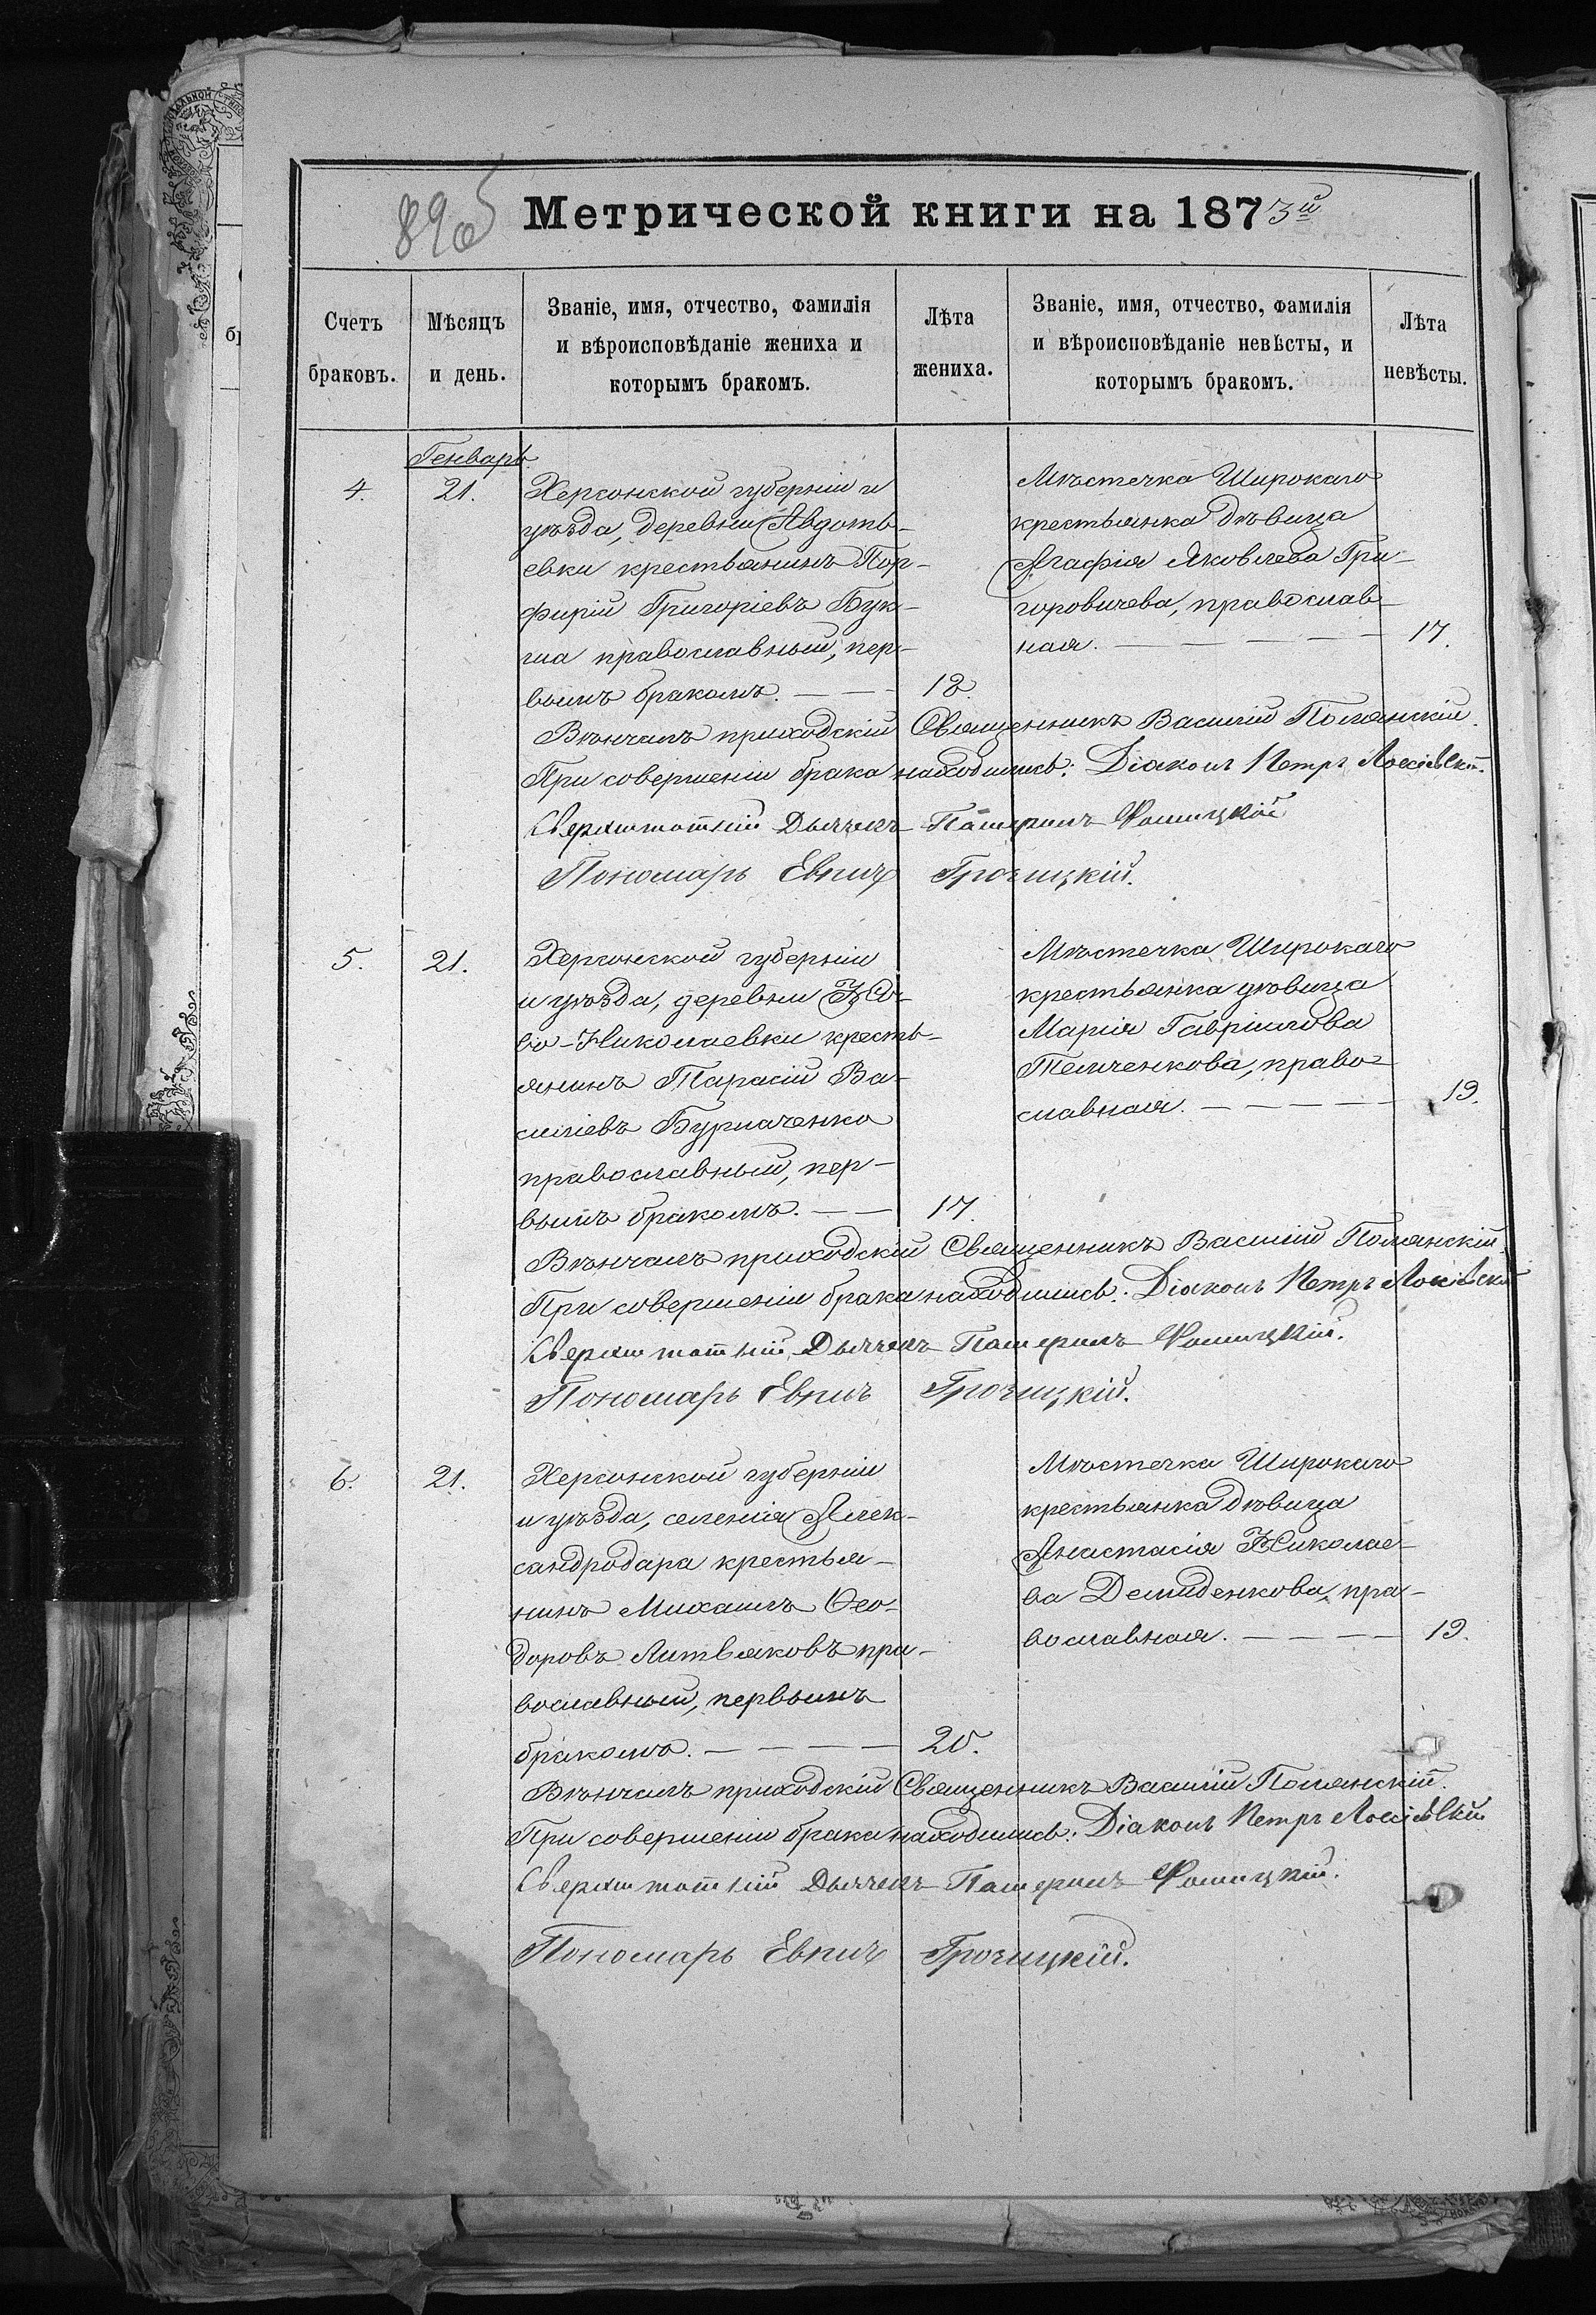 895
Метрической книги на 1873й
Счетъ браковъ.
Мѣсяцъ и день.
Званіе, имя, отчество, фамилія и вѣроисповѣданіе жениха и которымъ бракомъ.
Лѣта жениха.
Званіе, имя, отчество, фамилія и вѣроисповѣданіе невѣсты, и которымъ бракомъ.
Лѣта невѣсты.
Генварь
4.
21.
Херсонской губерніи и
уѣзда, деревни Авдоть-
евки крестьянинъ Пор-
фирій Григоріевъ Бук-
ша православный, пер-
вымъ бракомъ. — —
18.
Мѣстечка Широкаго
крестьянка дѣвица
Агафія Яковлева Гри-
горовичева, православ-
ная. — — — —
17.
Вѣнчалъ приходскій Священникъ Василій Полянскій.
При совершеніи брака находились: Діаконъ Петръ
Сверхштатный Дьячекъ
Пономарь
5.
21.
Херсонской губерніи
и уѣзда, деревни Но-
во-Николаевки кресть-
янинъ Тарасій Ва-
силіевъ Бурлаченко
православный, пер-
вымъ бракомъ. — —
17.
Мѣстечка Широкаго
крестьянка дѣвица
Марія Гавріилова
Темченкова, право-
славная. — — — —
19.
Вѣнчалъ приходскій Священникъ Василій Полянскій.
При совершеніи брака находились: Діаконъ Петръ
Сверхштатный Дьячекъ
Пономарь
6.
21.
Херсонской губерніи
и уѣзда, селенія Алек-
сандродара крестья-
нинъ Михаилъ Ѳео-
доровъ Литвяковъ пра-
вославный, первымъ
бракомъ. — — — —
20.
Мѣстечка Широкаго
крестьянка дѣвица
Анастасія Николае-
ва Демиденкова, пра-
вославная. — — — —
19.
Вѣнчалъ приходскій Священникъ Василій Полянскій.
При совершеніи брака находились: Діаконъ Петръ
Сверхштатный Дьячекъ
Пономарь